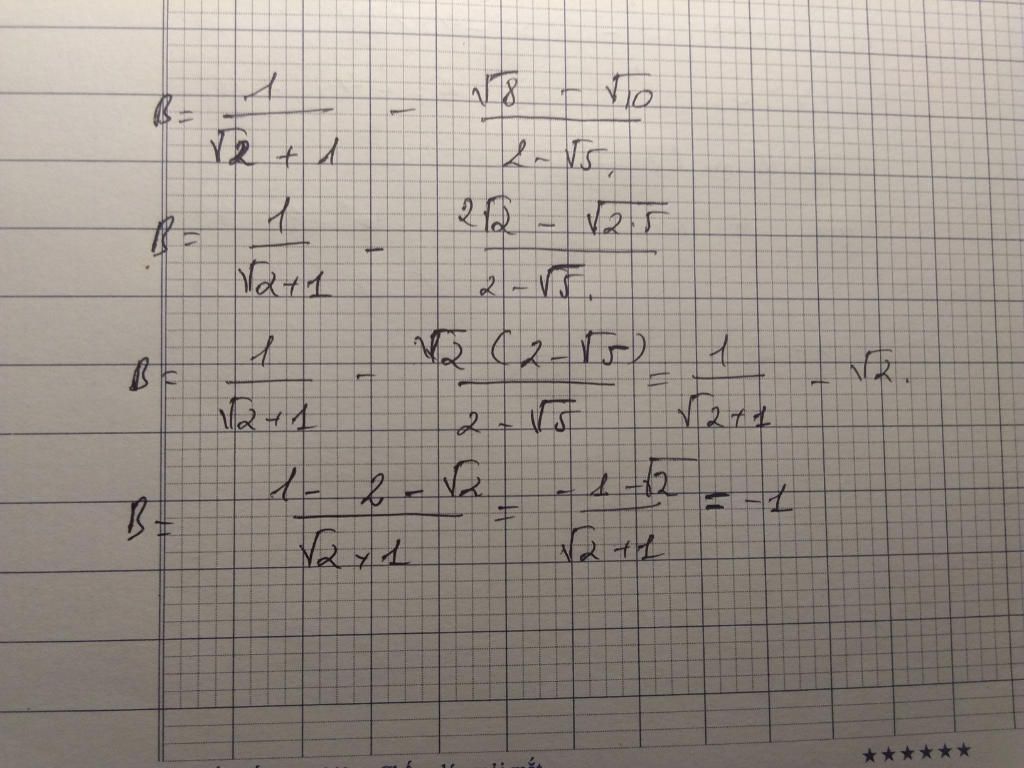 B = 1/(√2 + 1) - (√8 - √10)/(2 - √5).
B = 1/(√2 + 1) - (2√2 - √(2.5))/(2 - √5).
B = 1/(√2 + 1) - √2 (2 - √5)/(2 - √5) = 1/(√2 + 1) - √2.
B = (1 - 2 - √2)/(√2 + 1) = (-1 - √2)/(√2 + 1) = -1
★★★★★★